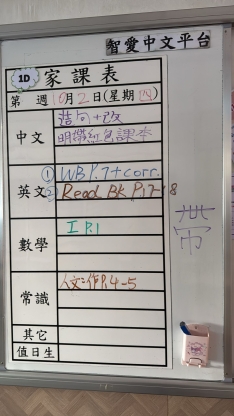 智愛中文平台
1D 家課表
第 週 10月2日(星期四)
中文 造句+改
明帶紅色課本
英文 ① WB P.7+corr.
② Read BK P.17-18
數學 I P.1
常識 人文:作P.4-5
其它
值日生
帶